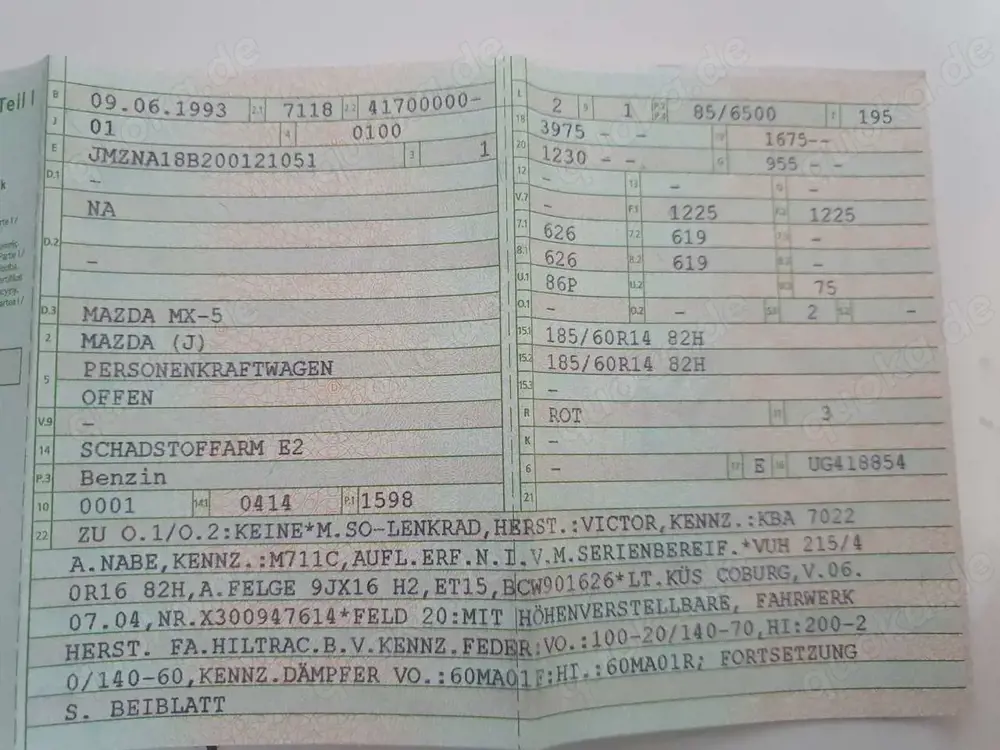 Teil I
B 09.06.1993 2.1 7118 2.2 41700000-
J 01 4 0100
E JMZNA18B200121051 3 1
D.1 -
NA
D.2
-
D.3 MAZDA MX-5
2 MAZDA (J)
5 PERSONENKRAFTWAGEN
OFFEN
V.9 -
14 SCHADSTOFFARM E2
P.3 Benzin
10 0001 14.1 0414 P.1 1598
L 2 9 1 P.2 P.4 85/6500 T 195
18 3975 - - 19 1675--
20 1230 - - G 955 - -
12 - 13 - Q -
V.7 - F.1 1225 F.2 1225
7.1 626 7.2 619 7.3 -
8.1 626 8.2 619 8.3 -
U.1 86P U.2 U.3 75
O.1 - O.2 - S.1 2 S.2 -
15.1 185/60R14 82H
15.2 185/60R14 82H
15.3 -
R ROT 11 3
K -
6 - 17 E 16 UG418854
21
22 ZU O.1/O.2:KEINE*M.SO-LENKRAD,HERST.:VICTOR,KENNZ.:KBA 7022
A.NABE,KENNZ.:M711C,AUFL.ERF.N.I.V.M.SERIENBEREIF.*VUH 215/4
0R16 82H,A.FELGE 9JX16 H2,ET15,BCW901626*LT.KÜS COBURG,V.06.
07.04,NR.X300947614*FELD 20:MIT HÖHENVERSTELLBARE, FAHRWERK
HERST. FA.HILTRAC.B.V.KENNZ.FEDER:VO.:100-20/140-70,HI:200-2
0/140-60,KENNZ.DÄMPFER VO.:60MA01F:HI.:60MA01R; FORTSETZUNG
S. BEIBLATT
quoka.de